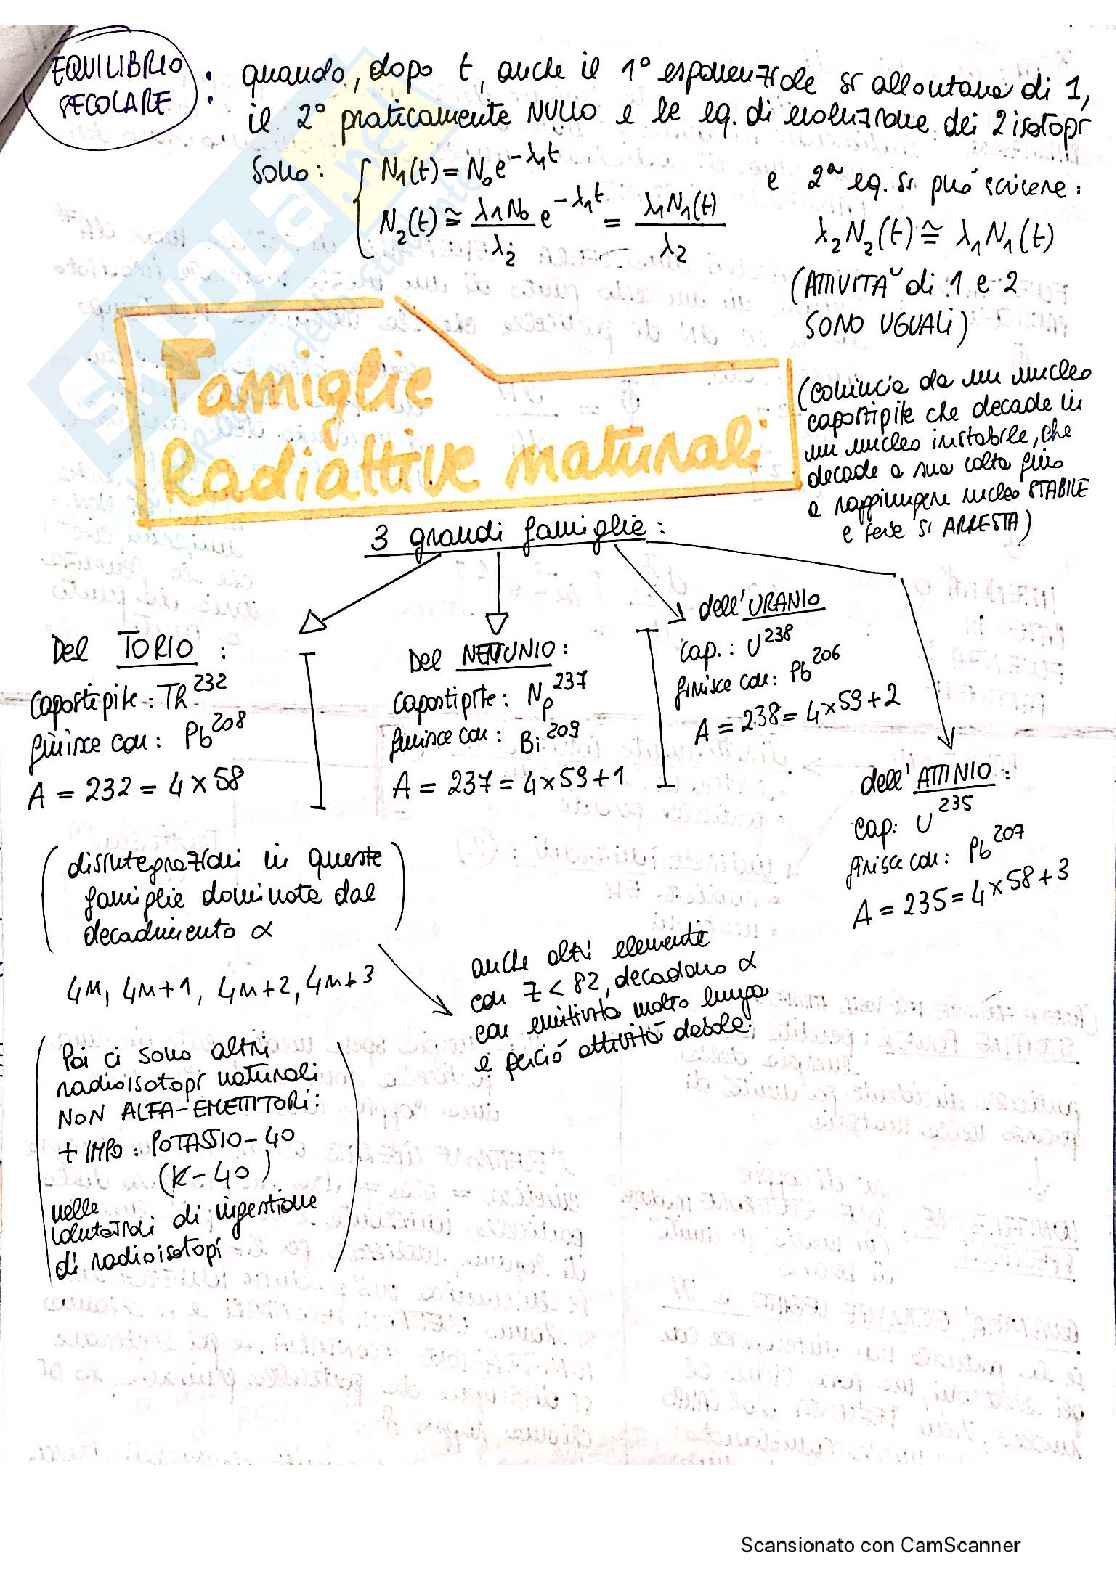 EQUILIBRIO
SECOLARE :
quando, dopo t, anche il 1° esponenziale si allontana di 1,
il 2° praticamente NULLO e le eq. di evoluzione dei 2 isotopi
sono: { N₁(t) = N₀e^-λ₁t
N₂(t) ≅ λ₁N₀/λ₂ e^-λ₁t = λ₁N₁(t)/λ₂
e 2ª eq. si può scrivere:
λ₂N₂(t) ≅ λ₁N₁(t)
(ATTIVITÀ di 1 e 2
SONO UGUALI)
Famiglie
Radiattive naturali
(comincia da un nucleo
capostipite che decade in
un nucleo instabile, che
decade a sua volta fino
a raggiungere nucleo STABILE
e serie si ARRESTA)
3 grandi famiglie:
Del TORIO :
Capostipite: Th²³²
finisce con: Pb²⁰⁸
A = 232 = 4 x 58
Del NETTUNIO:
capostipite: Np²³⁷
finisce con: Bi²⁰⁹
A = 237 = 4 x 59 + 1
dell'URANIO
cap.: U²³⁸
finisce con: Pb²⁰⁶
A = 238 = 4 x 59 + 2
dell'ATTINIO:
cap: U²³⁵
finisce con: Pb²⁰⁷
A = 235 = 4 x 58 + 3
(disintegrazioni in queste
famiglie dominate dal
decadimento α)
4n, 4n+1, 4n+2, 4n+3
anche altri elementi
con Z < 82, decadono α
con emittività molto lunga
e perciò attività debole.
(Poi ci sono altri
radioisotopi naturali
NON ALFA-EMETTITORI:
+ IMPO: POTASSIO-40
(K-40)
nelle
di ingestione
di radioisotopi)
Scansionato con CamScanner